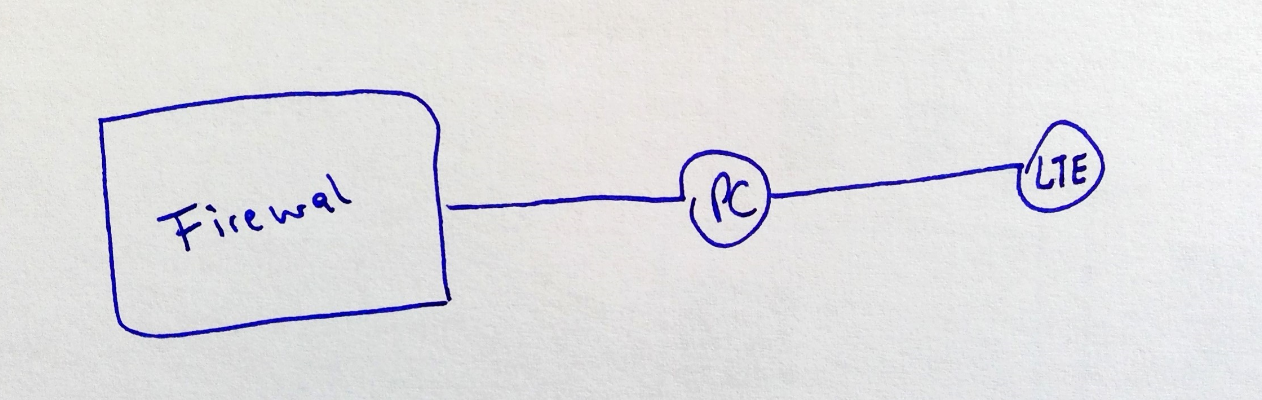 Firewal
PC
LTE